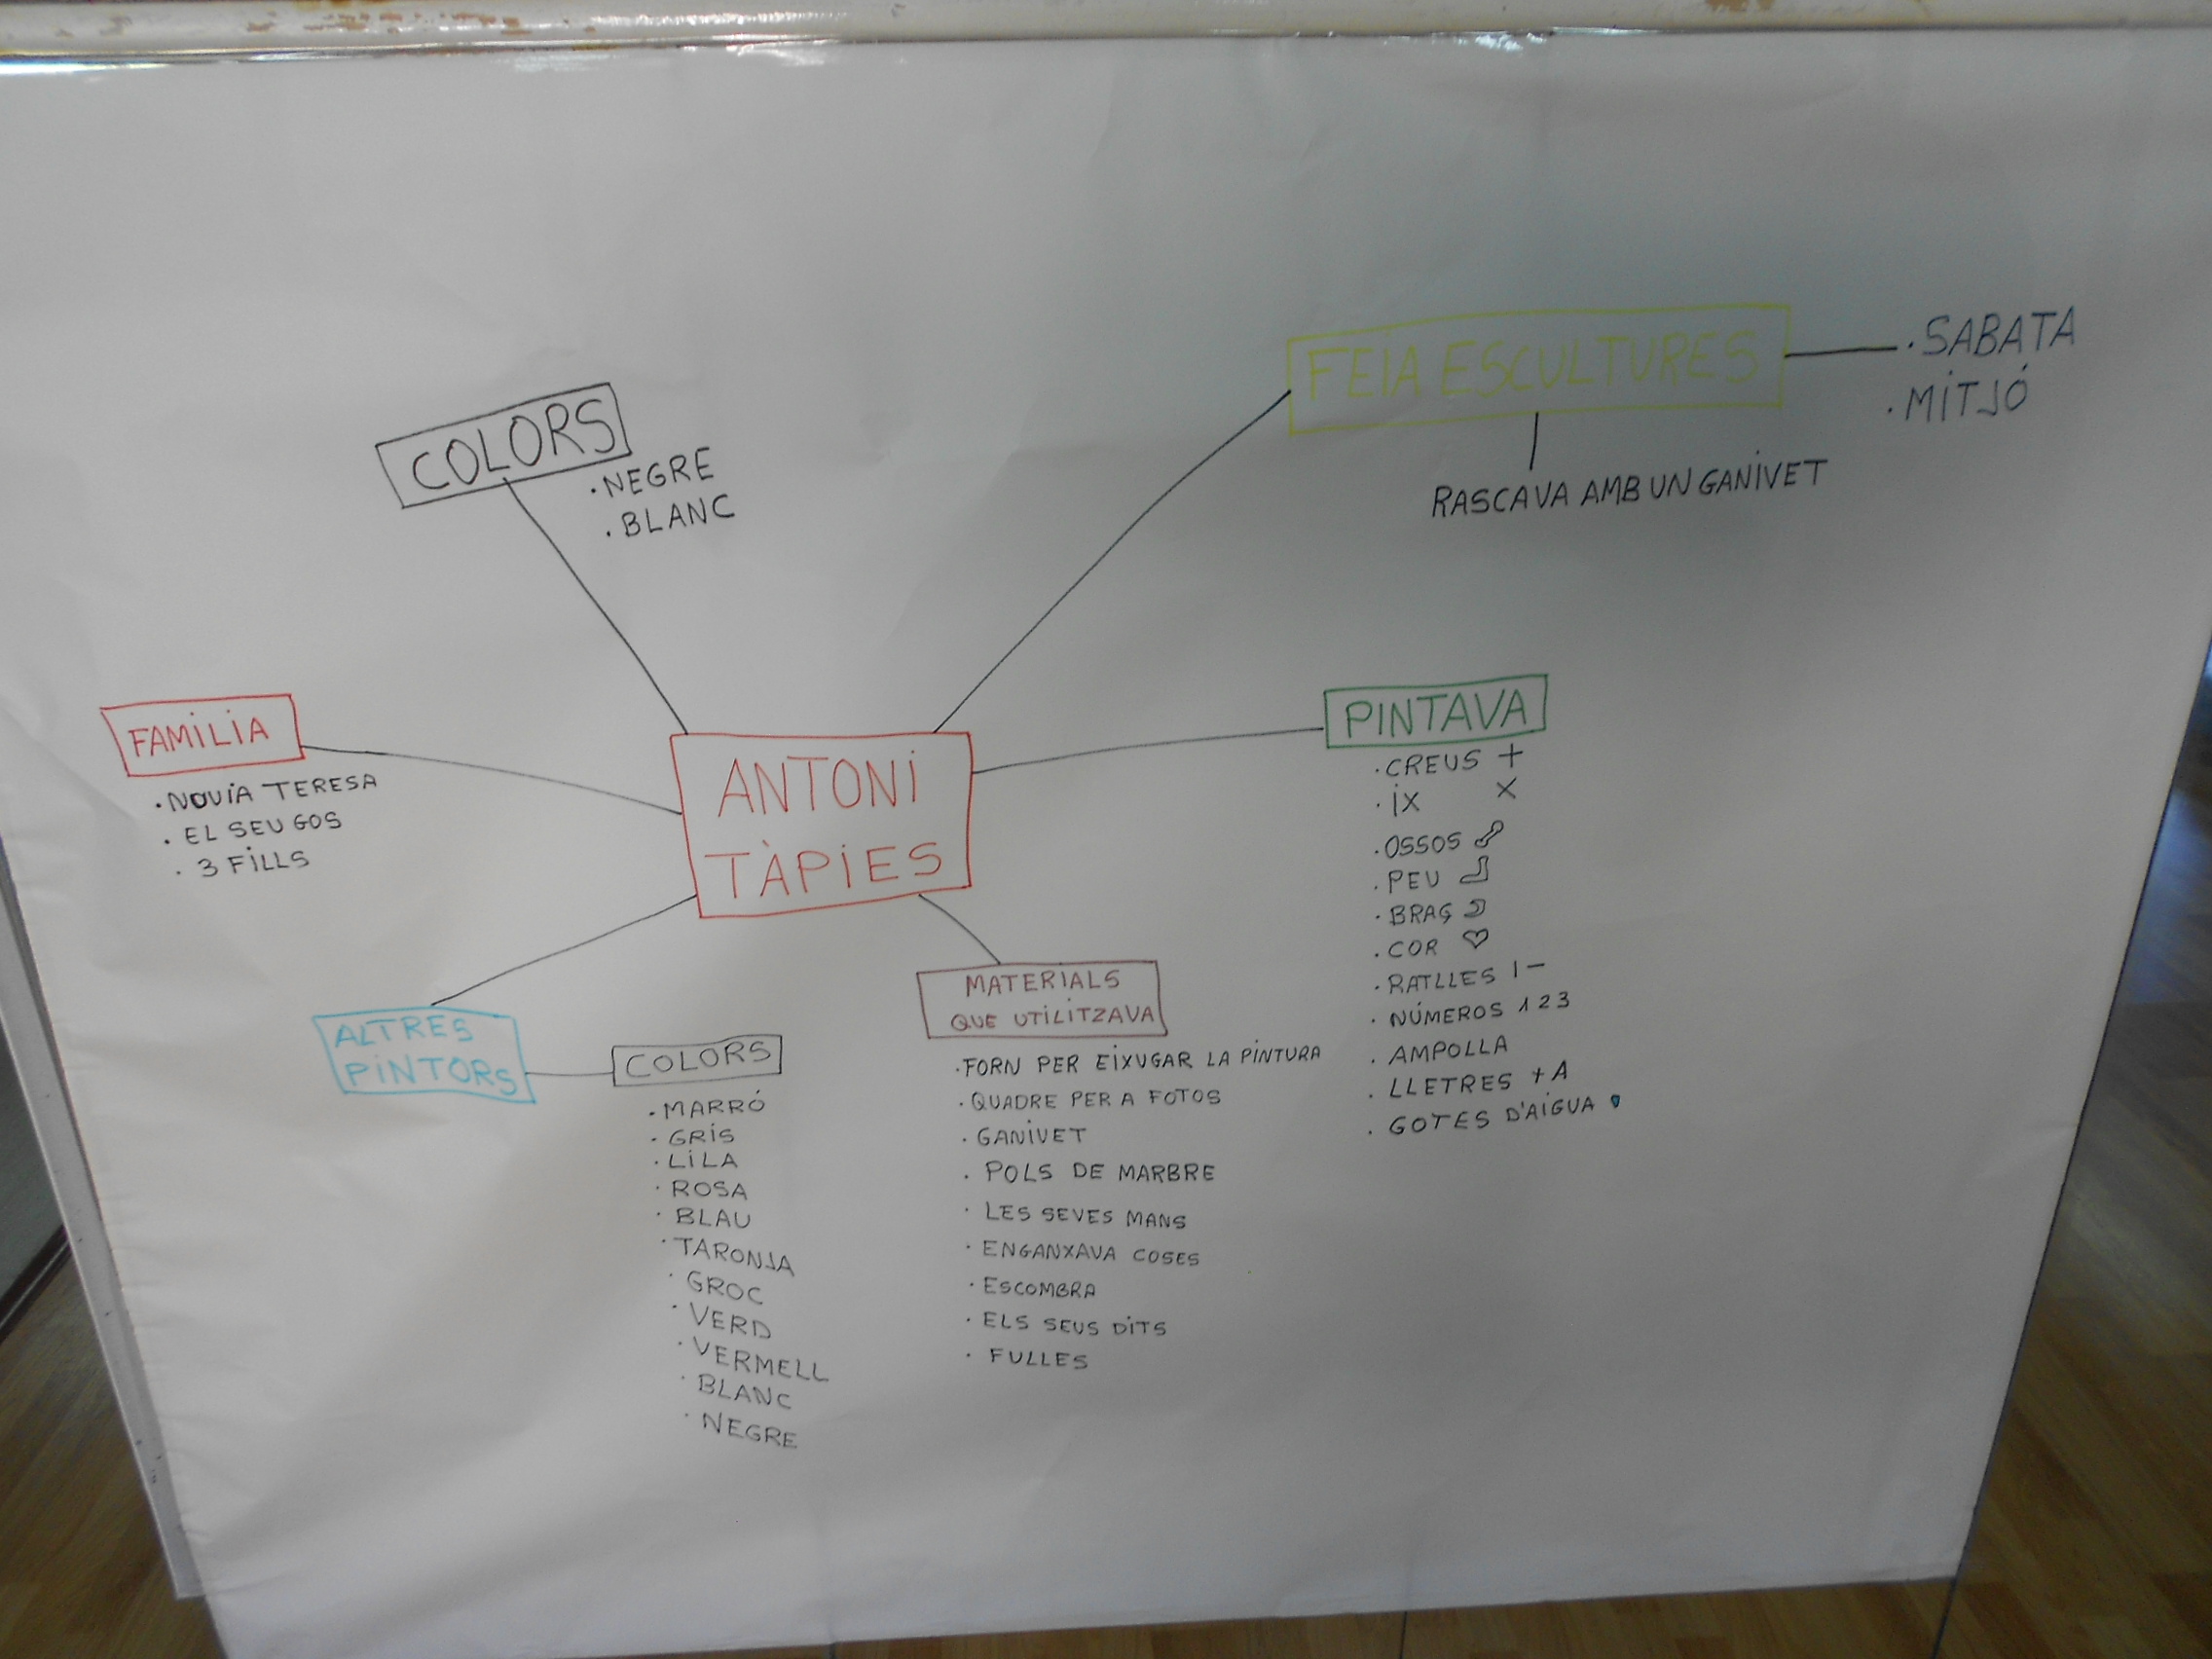 COLORS
·NEGRE
·BLANC
FEIA ESCULTURES
·SABATA
·MITJÓ
RASCAVA AMB UN GANIVET
FAMILIA
·NOVIA TERESA
·EL SEU GOS
·3 FILLS
ANTONI
TÀPIES
PINTAVA
·CREUS +
·IX X
·OSSOS
·PEU
·BRAÇ
·COR ♡
·RATLLES | —
·NÚMEROS 1 2 3
·AMPOLLA
·LLETRES + A
·GOTES D'AIGUA
ALTRES
PINTORS
COLORS
·MARRÓ
·GRIS
·LILA
·ROSA
·BLAU
·TARONJA
·GROC
·VERD
·VERMELL
·BLANC
·NEGRE
MATERIALS
QUE UTILITZAVA
·FORN PER EIXUGAR LA PINTURA
·QUADRE PER A FOTOS
·GANIVET
·POLS DE MARBRE
·LES SEVES MANS
·ENGANXAVA COSES
·ESCOMBRA
·ELS SEUS DITS
·FULLES